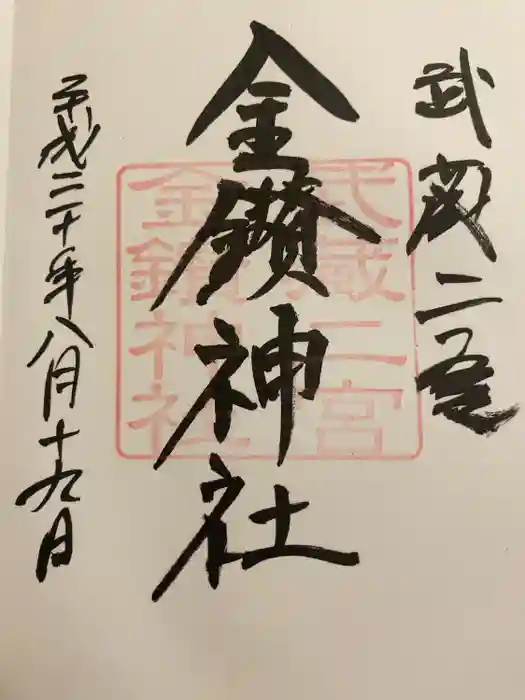 武蔵二宮
金鑚神社
平成二十年八月十九日
武蔵二宮
金鑚神社